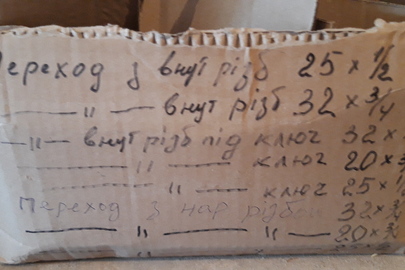 Переход з внут різб 25 × 1/2
—— " —— внут різб 32 × 3/4
—"— внут різб під ключ 32 ×
—— " —— ключ 20 ×
—— " —— ключ 25 × 1/
Переход з нар різбою 32 ×
—— " —— " —— 20 ×